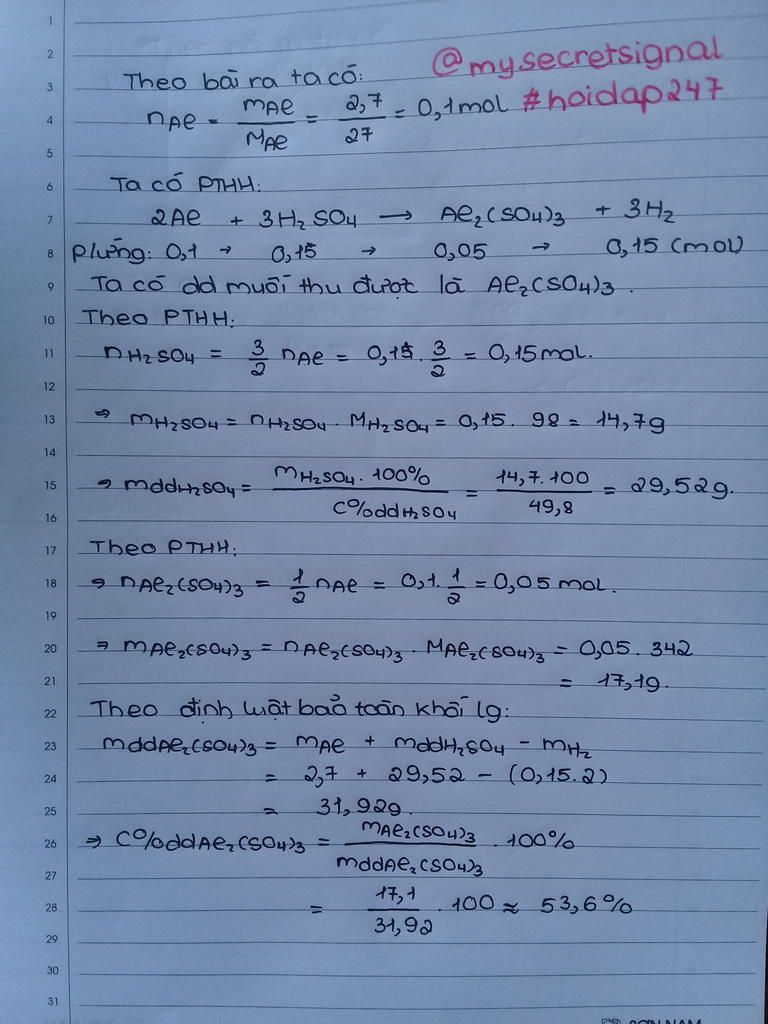 1
2
@mysecretsignal
3 Theo bài ra ta có:
4 nAl = mAl / MAl = 2,7 / 27 = 0,1mol #hoidap247
5
6 Ta có PTHH:
7 2Al + 3H₂SO₄ → Al₂(SO₄)₃ + 3H₂
8 Pứng: 0,1 → 0,15 → 0,05 → 0,15 (mol)
9 Ta có dd muối thu được là Al₂(SO₄)₃.
10 Theo PTHH:
11 nH₂SO₄ = 3/2 nAl = 0,1 . 3/2 = 0,15mol.
12
13 ⇒ mH₂SO₄ = nH₂SO₄ . MH₂SO₄ = 0,15 . 98 = 14,7g
14
15 ⇒ mddH₂SO₄ = mH₂SO₄ . 100% / C%ddH₂SO₄ = 14,7.100 / 49,8 = 29,52g.
16
17 Theo PTHH:
18 ⇒ nAl₂(SO₄)₃ = 1/2 nAl = 0,1 . 1/2 = 0,05 mol.
19
20 ⇒ mAl₂(SO₄)₃ = nAl₂(SO₄)₃ . MAl₂(SO₄)₃ = 0,05 . 342
21 = 17,1g.
22 Theo định luật bảo toàn khối lg:
23 mddAl₂(SO₄)₃ = mAl + mddH₂SO₄ - mH₂
24 = 2,7 + 29,52 - (0,15.2)
25 = 31,92g.
26 ⇒ C%ddAl₂(SO₄)₃ = mAl₂(SO₄)₃ / mddAl₂(SO₄)₃ . 100%
27
28 = 17,1 / 31,92 . 100 ≈ 53,6%
29
30
31